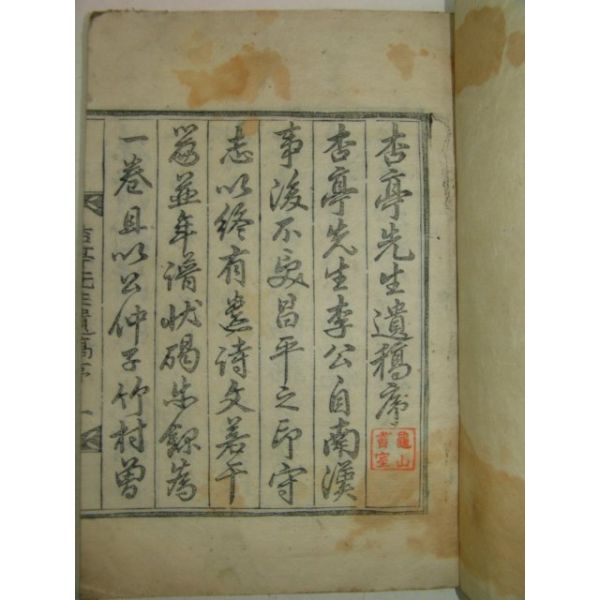 杏亭先生遺稿序
龜山書室
杏亭先生李公自南漢
事後不受昌平之印守
志以終有遺詩文若干
篇並年譜狀碣錄為
一卷且以公仲子竹村曾
杏亭先生遺稿序 一